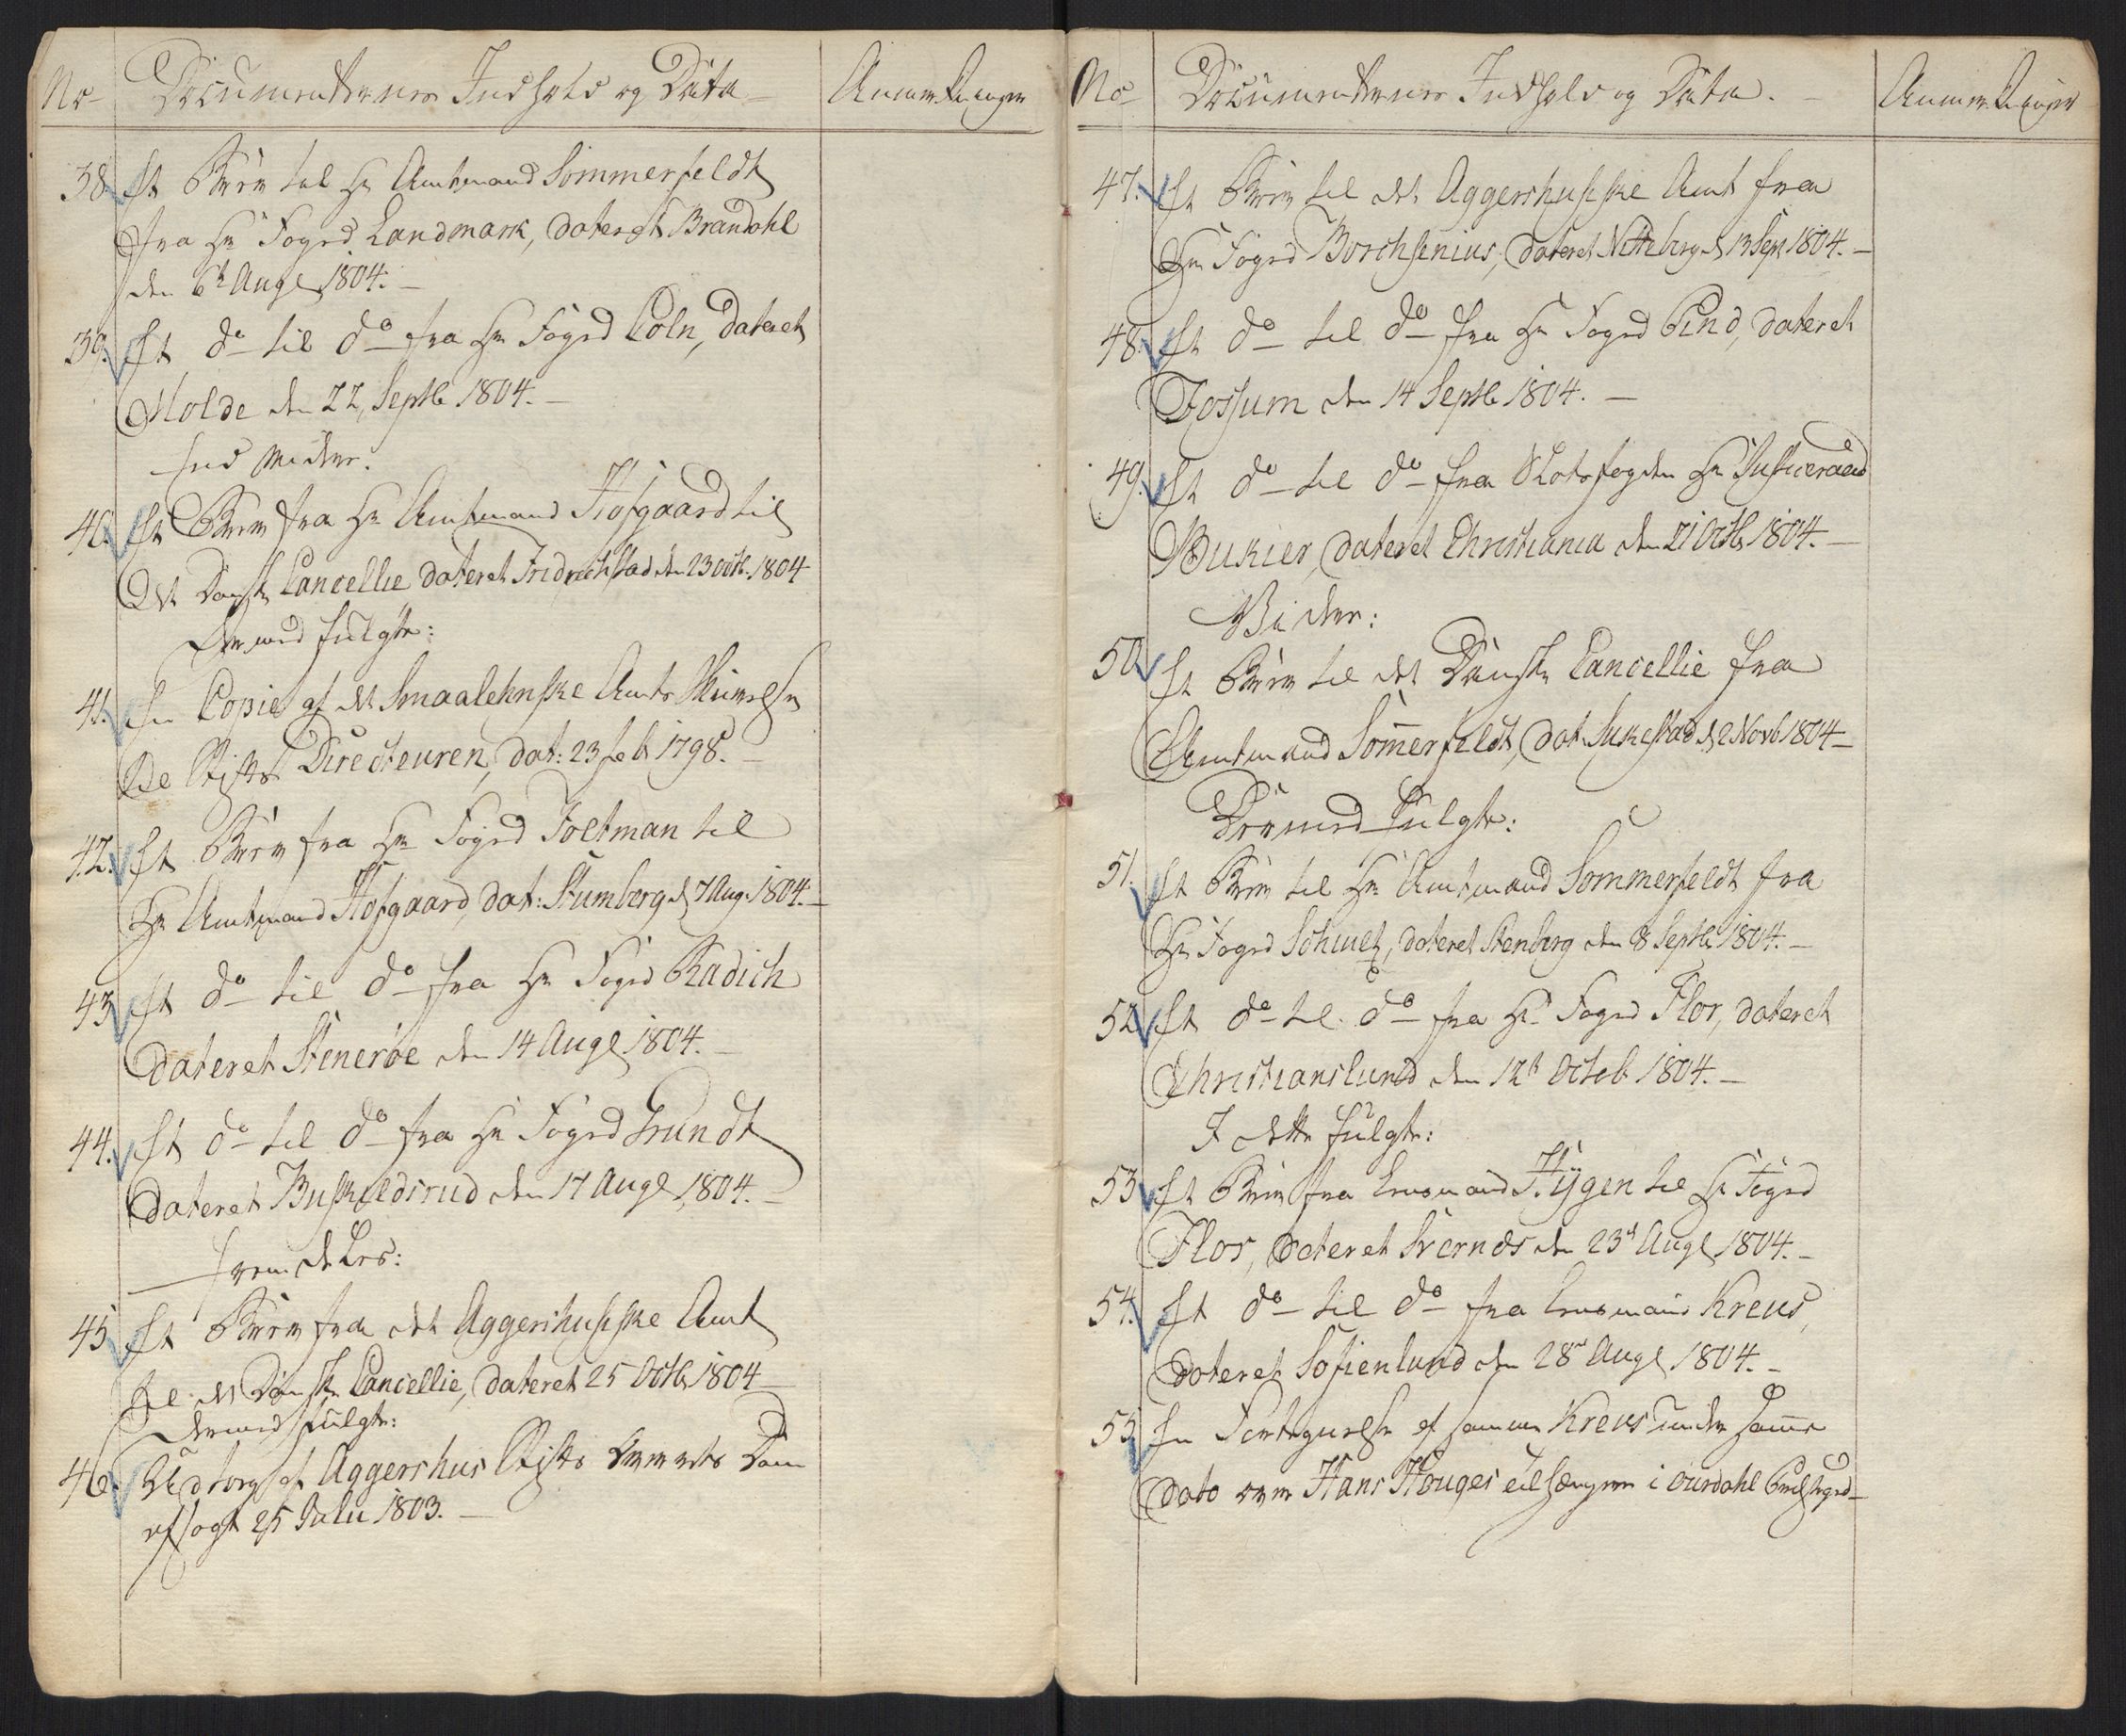 No
Documenternes Indhold og Data
Anmerkninger
38. Et Brev til Hr Amtmand Sommerfeldt
fra Hr Foged Landmark, dateret Brandahl
den 6t Aug 1804. –
39. Et do til do fra Hr Foged Coln, dateret
Molde den 22 Septb 1804. –
40. Et Brev fra Hr Amtmand Hofgaard til
Det Danske Cancellie dateret Fridrichstad den 23 octb. 1804
Hermed fulgte:
41. En Copie af det Smaalehnske Amts Skrivelse
til Stifts Directeuren, dat: 23 feb 1798. –
42. Et Brev fra Hr Foged Foltman til
Hr Amtmand Hofgaard, dat: Stumberg d 7 Aug. 1804. –
43 Et do til do fra Hr Foged Radich
dateret Stenerøe den 14 Aug 1804. –
44. Et do til do fra Hr Foged Grundt
dateret Buskeldsrud den 17 Aug 1804. –
Fremdeles:
45 Et Brev fra det Aggershusiske Amt
til det Danske Cancellie, dateret 25 Octb 1804
Hermed fulgte:
46. Udtog af Aggershus Stifts Overrets Dom
afsagt 25 Julii 1803. –
No
Documenternes Indhold og Data. –
Anmerkninger
47. Et Brev til det Aggershusiske Amt fra
Hr Foged Borchsenius, dateret Netteberg d 13 Sept 1804. –
48. Et do til do fra Hr Foged Pind, dateret
Fossum den 14 Septb 1804. –
49. Et do til do fra Slotsfogden Hr Justiceraad
Bukier, dateret Christiania den 21 Octb 1804. –
Videre:
50. Et Brev til det Danske Cancellie fra
Amtmand Sommerfeldt, dat. Sukestad d 2 Novb 1804 –
Hermed fulgte:
51. Et Brev til Hr Amtmand Sommerfeldt fra
Hr Foged Schmet, dateret Stenberg den 8 Septb 1804. –
52. Et do til do fra Hr Foged Flor, dateret
Christianslund den 12t Octob 1804. –
I dette fulgte:
53 Et Brev fra Lensmand Hygen til Hr Foged
Flor, dateret Svernæs den 23d Aug 1804. –
54. Et do til do fra Lensmand Kreus,
dateret Sofienlund den 28de Aug 1804. –
55 En Fortegnelse af samme Kreus under samme
dato over Hans Houges tilhængere i Ourdahl Præstegield –